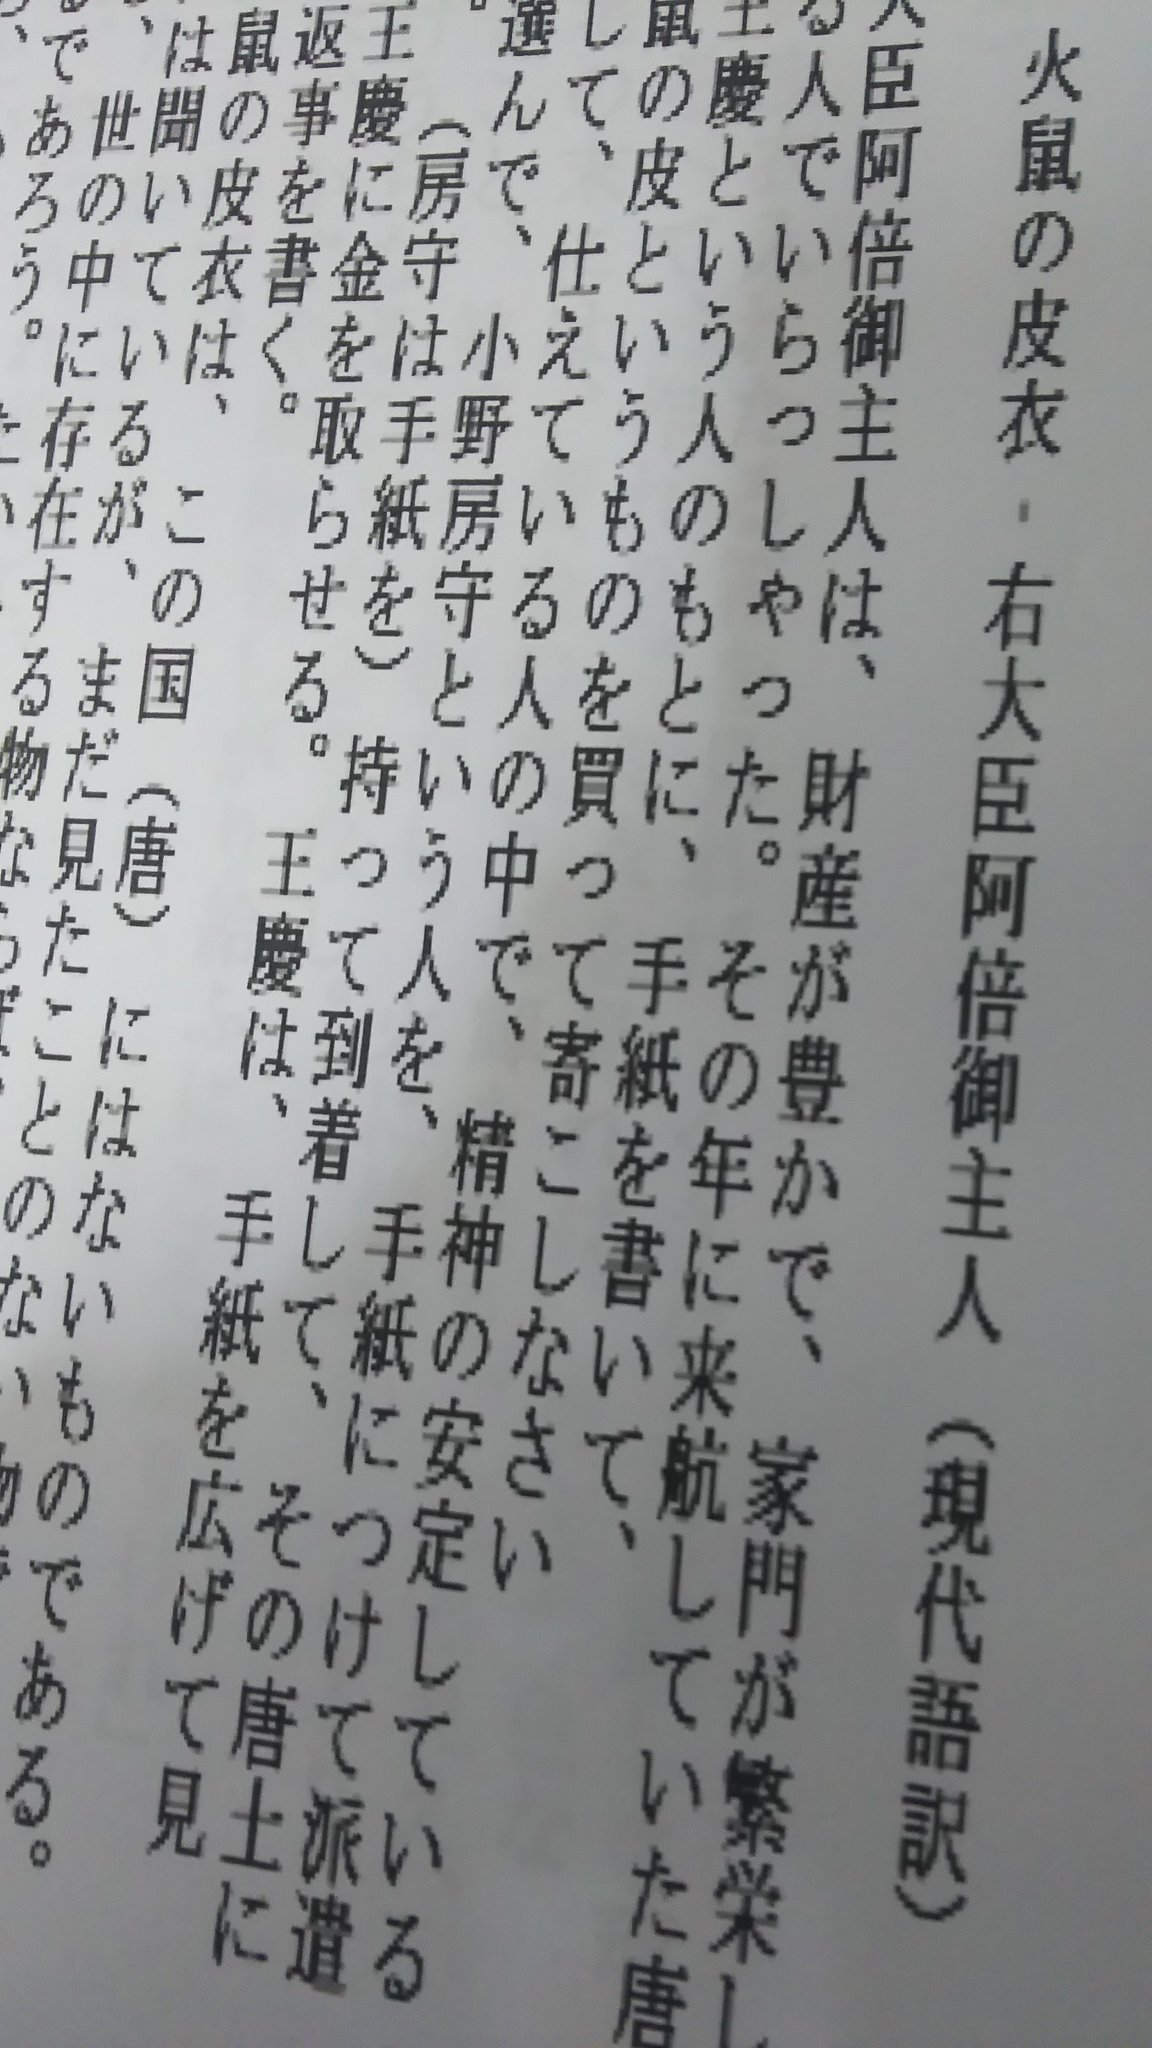 火鼠の皮衣 - 右大臣阿倍御主人 (現代語訳)
大臣阿倍御主人は、 財産が豊かで、 家門が繁栄し
る人でいらっしゃった。 その年に来航していた唐
王慶という人のもとに、 手紙を書いて、
鼠の皮というものを買って寄こしなさい
して、 仕えている人の中で、 精神の安定している
選んで、 小野房守という人を、 手紙につけて派遣
。 (房守は手紙を) 持って到着して、 その唐土に
王慶に金を取らせる。 王慶は、 手紙を広げて見
返事を書く。
鼠の皮衣は、 この国 (唐) にはないものである。
は聞いているが、 まだ見たことのない物
、 世の中に存在する物ならば
であろう。